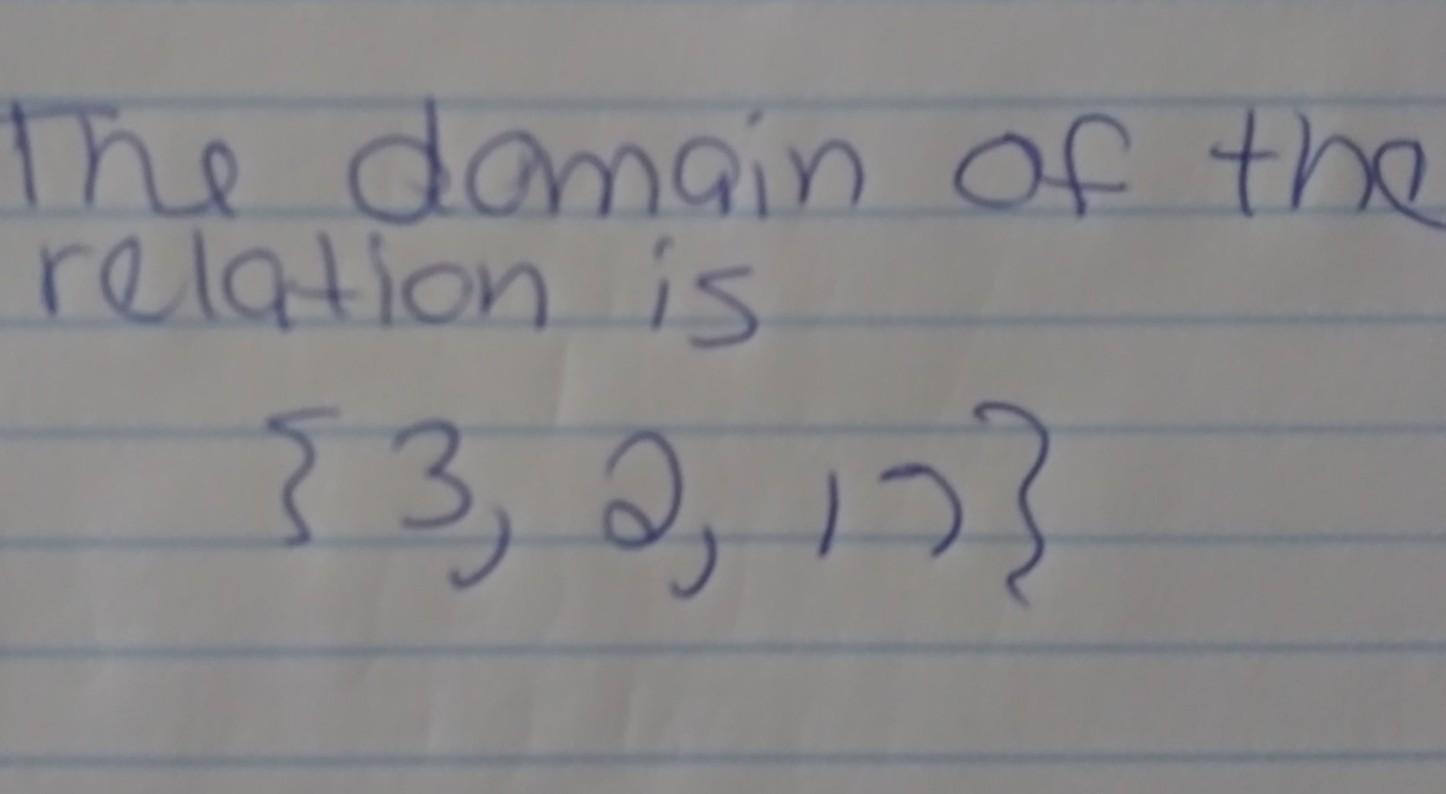 The domain of the
relation is
{3, 2, 17}